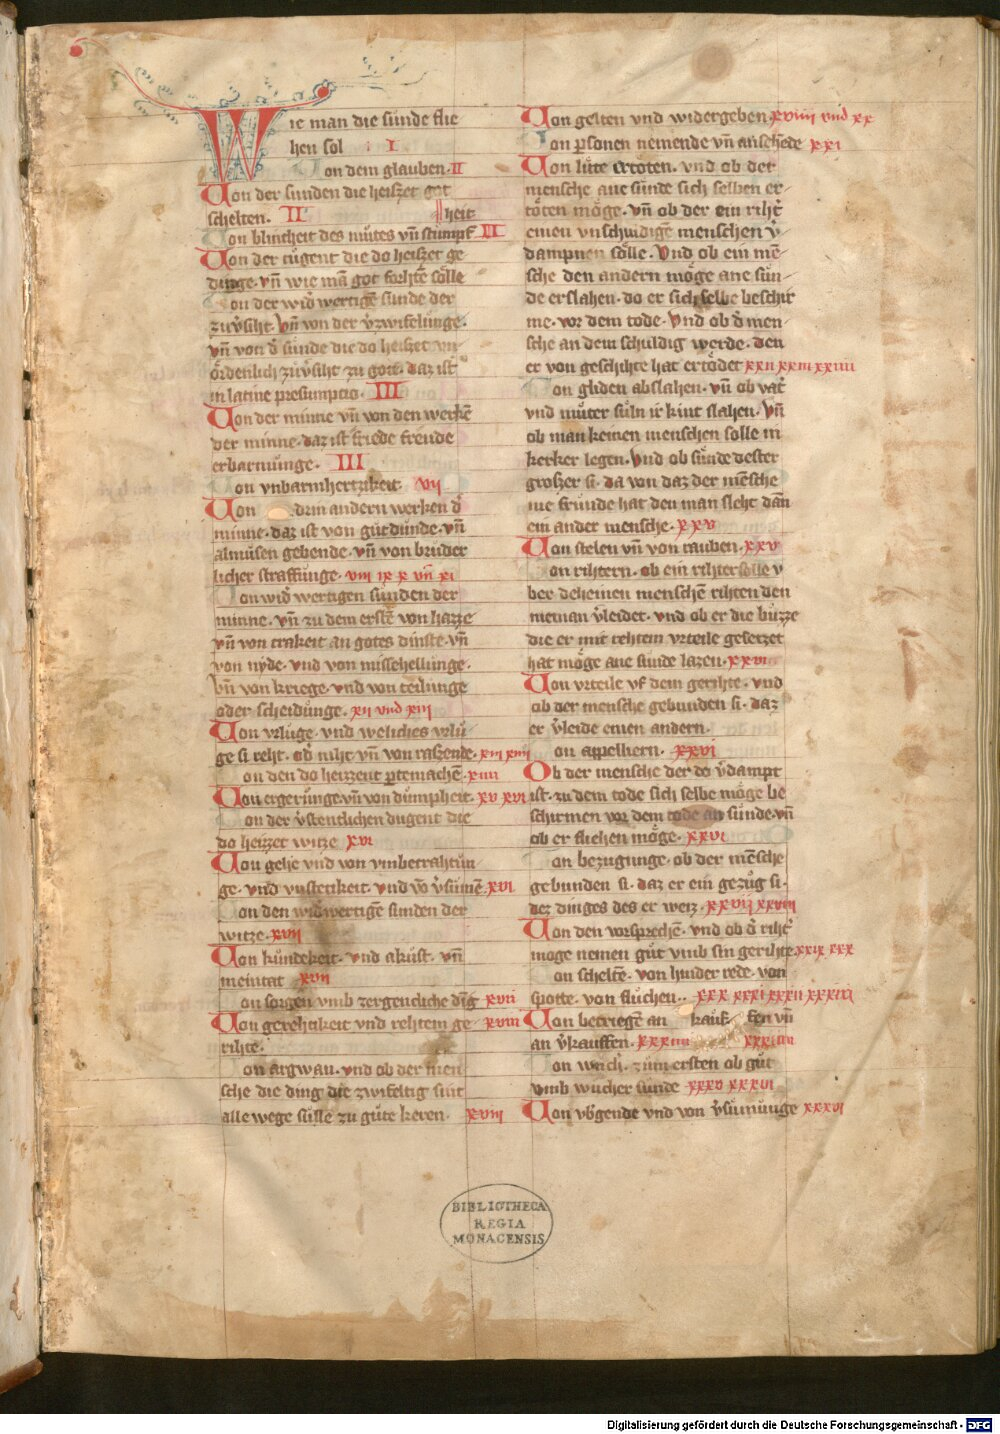 Wie man die sünde flie
hen sol I
Von dem glauben. II
Von der sunden die heiszet got
schelten. II heit
Von blintheit des mütes vn̄ stumpf II
Von der tügent die do heiszet ge
dinge. vn̄ wie mā got forhtē sölle
Von der wid̉ wertigē sunde der
zuv̉siht. Vn̄ von der v̉zwifelünge.
vn̄ von d̉ sünde die do heiszet vn
ördenlich züv̉siht zu gott. daz ist
in latine presumpcio. III
Von der minne vn̄ von den werkē
der minne. daz ist friede freude
erbarmünge. III
Von vnbarmhertzikeit. VII
Von drin andern werken d̉
minne. daz ist von gütdünde. vn̄
almüsen gebende. vn̄ von brüder
licher straffünge. VIII IX X vn̄ XI
Von wid̉ wertigen sünden der
minne. vn̄ zu dem erstē von hazze
vn̄ von trakeit an gotes dinste. vn̄
von nyde. vnd von missehellünge.
Vn̄ von kriege. vnd von teilünge
oder scheidünge. XII vnd XIII
Von vrlüge. vnd weliches vrlü
ge si reht. od̉ niht vn̄ von raszende. XIII XIIII
Von den do heizzent ꝑtemachē. XIIII
Von ergerünge. vn̄ von dümpheit. XV XVI
Von der v̉stentlichen dugent die
do heizzet witze XVI
Von gehe vnd von vmbetrahtün
ge. vnd vnstetikeit. vnd vō v̉sümē. XVI
Von den wid̉wertigē sünden der
witze. XVII
Von kündekeit. vnd aküst. vn̄
meintat XVII
Von sorgen vmb zergencliche dīg XVII
Von gerehtikeit vnd rehtem ge XVIII
rihte.
Von argwan. vnd ob der men
sche die ding die zwifeltig sint
alle wege sülle zu güte keren. XVIII
Von gelten vnd widergeben XVIIII vnd XX
Von ꝑsonen nemende vn̄ ansehēde XXI
Von lüte ertöten. vnd ob der
mensche ane sünde sich selben er
töten möge. vn̄ ob der ein riht̉
einen vnschuldigē menschen v̉
dampnen sölle. Vnd ob ein mē
sche den andern möge ane sün
de erslahen. do er sich selbe beschir
me. vor dem tode. Vnd ob d̉ men
sche an dem schuldig werde. den
er von geschihte hat ertödet XXII XXIII XXIIII
Von gliden abslahen. vn̄ ob vat̉
vnd müter süln ir kint slahen. Vn̄
ob man keinen menschen solle in
kerker legen. Vnd ob sünde dester
groszer si. da von daz der mēsche
me fründe hat den man sleht dān
ein ander mensche. XXV
Von stelen vn̄ von rauben. XXV
Von rihtern. ob ein rihter solle v
ber deheinen menschē rihten den
nieman v̉leidet. vnd ob er die büzze
die er mit rehtem vrteile gesetzet
hat möge ane sünde lazen. XXVI
Von vrteile vf dem gerihte. vnd
ob der mensche gebunden si. daz
er v̉leide einen andern.
Von appelliern. XXVI
Ob der mensche der do v̉dampt
ist. zu dem tode sich selbe möge be
schirmen vor dem tode an sünde. vn̄
ob er fliehen möge. XXVI
Von bezugunge. ob der mēsche
gebunden si. daz er ein gezüg si.
dez dinges des er weiz. XXVII XXVIII
Von den vorsprechē. vnd ob d̉ riht̉
moge nemen güt vmb sin gerihte. XXIX XXX
Von scheltē. von hinder rede. von
spotte. von flüchen. XXX XXXI XXXII XXXIII
Von betriegē an kauf fen vn̄
an v̉kauffen. XXXIIII XXXIIII
Von wuch̉. züm ersten ob güt
vmb wücher sünde XXXV XXXVI
Von vb̉gende vnd von v̉sümünge XXXVI
BIBLIOTHECA
REGIA
MONACENSIS
Digitalisierung gefördert durch die Deutsche Forschungsgemeinschaft - DFG